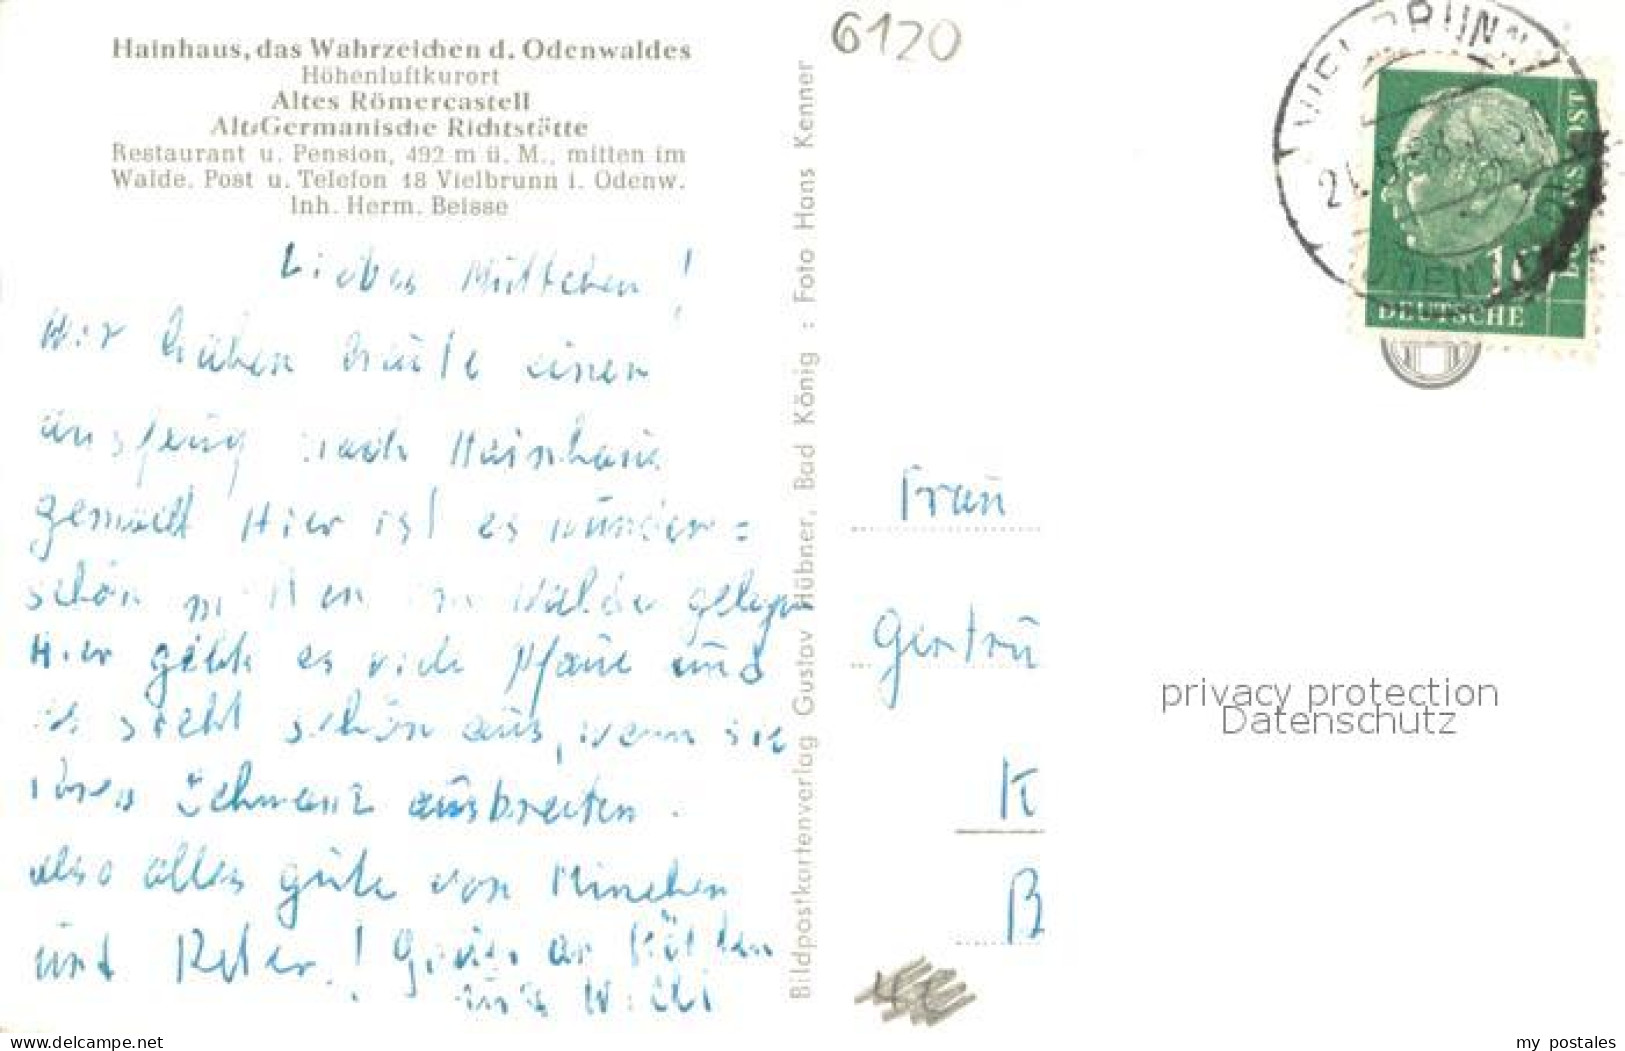 Hainhaus, das Wahrzeichen d. Odenwaldes
Höhenluftkurort
Altes Römercastell
Alt-Germanische Richtstätte
Restaurant u. Pension, 492 m ü. M., mitten im
Walde. Post u. Telefon 18 Vielbrunn i. Odenw.
Inh. Herm. Beisse
Liebes Muttchen!
Wir haben heute einen
ausflug nach Hainhaus
gemacht Hier ist es wunder=
schön mitten im Walde gelegen
Hier gibt es viele Pfaue und
es sieht schön aus, wenn sie
ihren Schwanz ausbreiten.
also alles gute von
und Peter! an
und Willi
Bildpostkartenverlag Gustav Hübner, Bad König : Foto Hans Kenner
6120
DEUTSCHE
BUNDESPOST
10
Frau
Gertru
K
B
privacy protection
Datenschutz
www.delcampe.net
my_postales